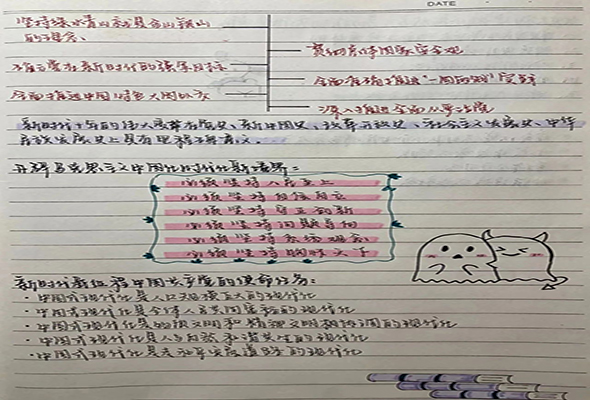 DATE
坚持绿水青山就是金山银山
的理念、
贯彻总体国家安全观
确立党在新时代的强军目标
全面准确推进"一国两制"实践
全面推进中国特色大国外交
深入推进全面从严治党
新时代十年的伟大变革在党史、新中国史、改革开放史、社会主义发展史、中华
民族发展史上具有里程碑意义、
开辟马克思主义中国化时代化新境界:
必须坚持人民至上
必须坚持自信自立
必须坚持守正创新
必须坚持问题导向
必须坚持系统观念
必须坚持胸怀天下
新时代新征程中国共产党的使命任务:
·中国式现代化是人口规模巨大的现代化
·中国式现代化是全体人民共同富裕的现代化
·中国式现代化是物质文明和精神文明相协调的现代化
·中国式现代化是人与自然和谐共生的现代化
·中国式现代化是走和平发展道路的现代化